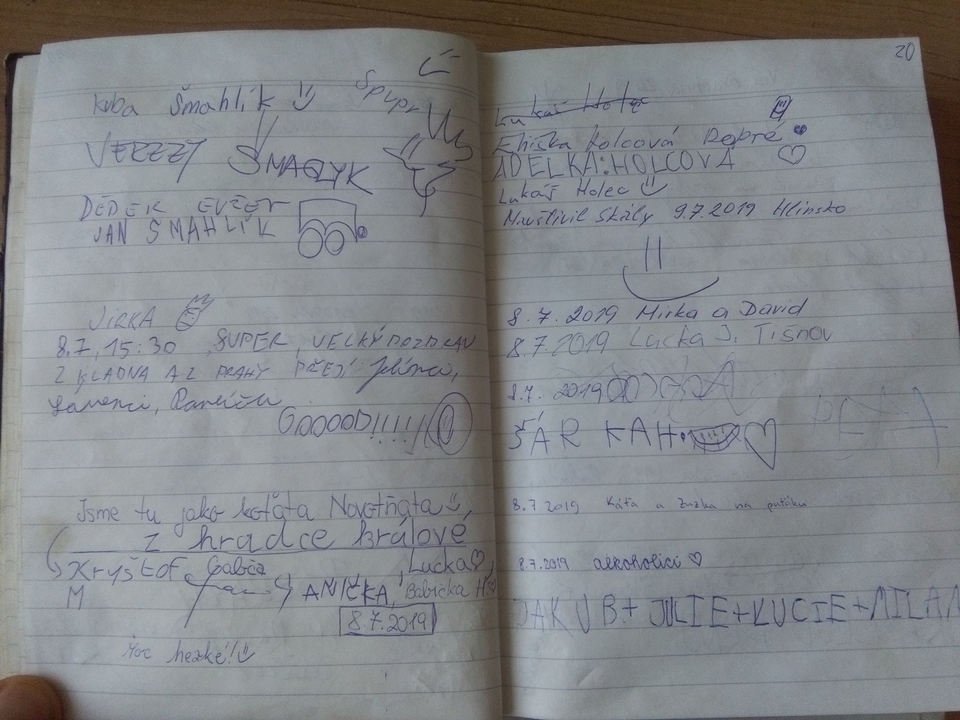 Kuba Šmahlík
ŠMAQLYK
DĚDEK EVŽEN
JAN ŠMAHLÍK
JIRKA
8.7, 15:30 SUPER, VELKÝ POZDRAV
Z KLADNA AŽ PRAHY PŘEJÍ
GOOOOD!!!!!
Jsme tu jako koťata Novotňata
z hradce králové
Kryštof Gábiča, Lucka
M ANIČKA, Babička H
8.7.2019
Moc hezké!
20
Lukáš Holec
Eliška Holcová Dobré
ADELKA:HOLCOVÁ
Lukáš Holec
Navštívil Skály 9.7.2019 Hlinsko
8.7.2019 Mirka a David
8.7.2019 Lucka J. Tišnov
8.7.2019
ŠÁRKA H.
8.7.2019 Káťa a Zuzka na puťáku
8.7.2019 alkoholici
JAKUB+JULIE+LUCIE+MILAN